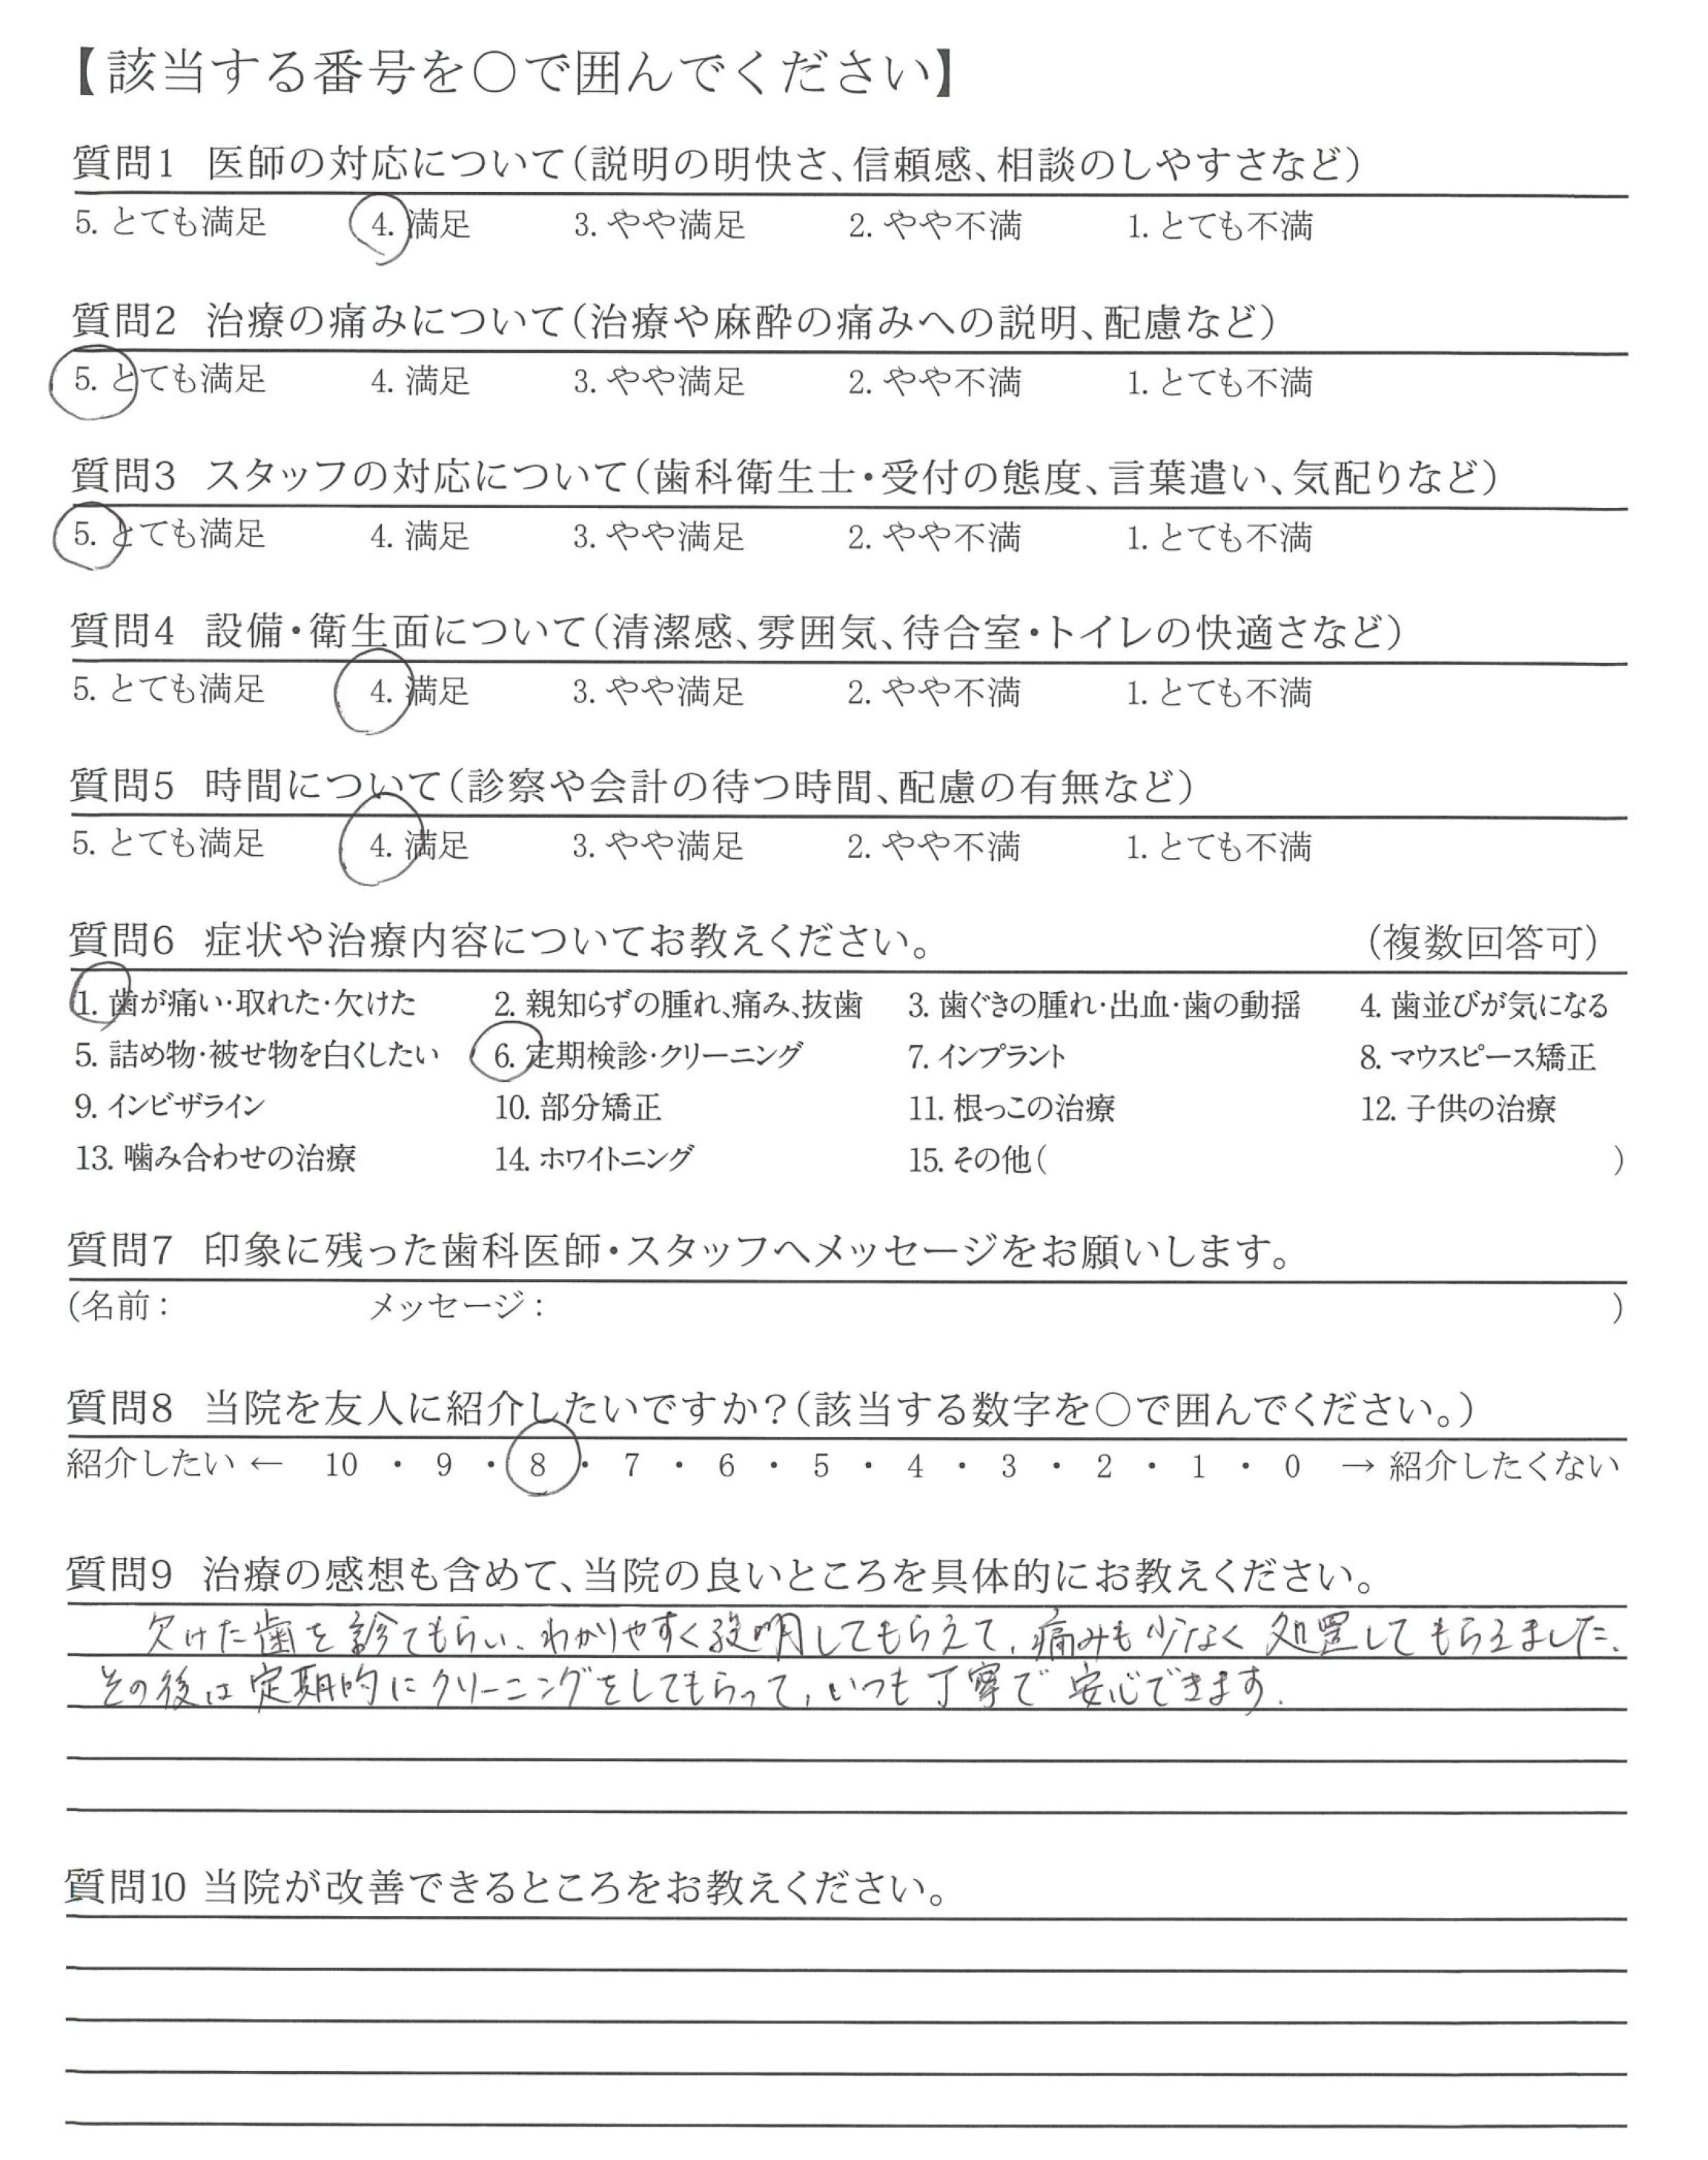 【該当する番号を○で囲んでください】
質問1 医師の対応について(説明の明快さ、信頼感、相談のしやすさなど)
5. とても満足 4. 満足 3. やや満足 2. やや不満 1. とても不満
質問2 治療の痛みについて(治療や麻酔の痛みへの説明、配慮など)
5. とても満足 4. 満足 3. やや満足 2. やや不満 1. とても不満
質問3 スタッフの対応について(歯科衛生士・受付の態度、言葉遣い、気配りなど)
5. とても満足 4. 満足 3. やや満足 2. やや不満 1. とても不満
質問4 設備・衛生面について(清潔感、雰囲気、待合室・トイレの快適さなど)
5. とても満足 4. 満足 3. やや満足 2. やや不満 1. とても不満
質問5 時間について(診察や会計の待つ時間、配慮の有無など)
5. とても満足 4. 満足 3. やや満足 2. やや不満 1. とても不満
質問6 症状や治療内容についてお教えください。 (複数回答可)
1. 歯が痛い・取れた・欠けた 2. 親知らずの腫れ、痛み、抜歯 3. 歯ぐきの腫れ・出血・歯の動揺 4. 歯並びが気になる
5. 詰め物・被せ物を白くしたい 6. 定期検診・クリーニング 7. インプラント 8. マウスピース矯正
9. インビザライン 10. 部分矯正 11. 根っこの治療 12. 子供の治療
13. 噛み合わせの治療 14. ホワイトニング 15. その他( )
質問7 印象に残った歯科医師・スタッフへメッセージをお願いします。
(名前: メッセージ: )
質問8 当院を友人に紹介したいですか?(該当する数字を○で囲んでください。)
紹介したい ← 10 ・ 9 ・ 8 ・ 7 ・ 6 ・ 5 ・ 4 ・ 3 ・ 2 ・ 1 ・ 0 → 紹介したくない
質問9 治療の感想も含めて、当院の良いところを具体的にお教えください。
欠けた歯を診てもらい、わかりやすく説明してもらえて、痛みも少なく処置してもらえました。
その後は定期的にクリーニングをしてもらって、いつも丁寧で安心できます。
質問10 当院が改善できるところをお教えください。